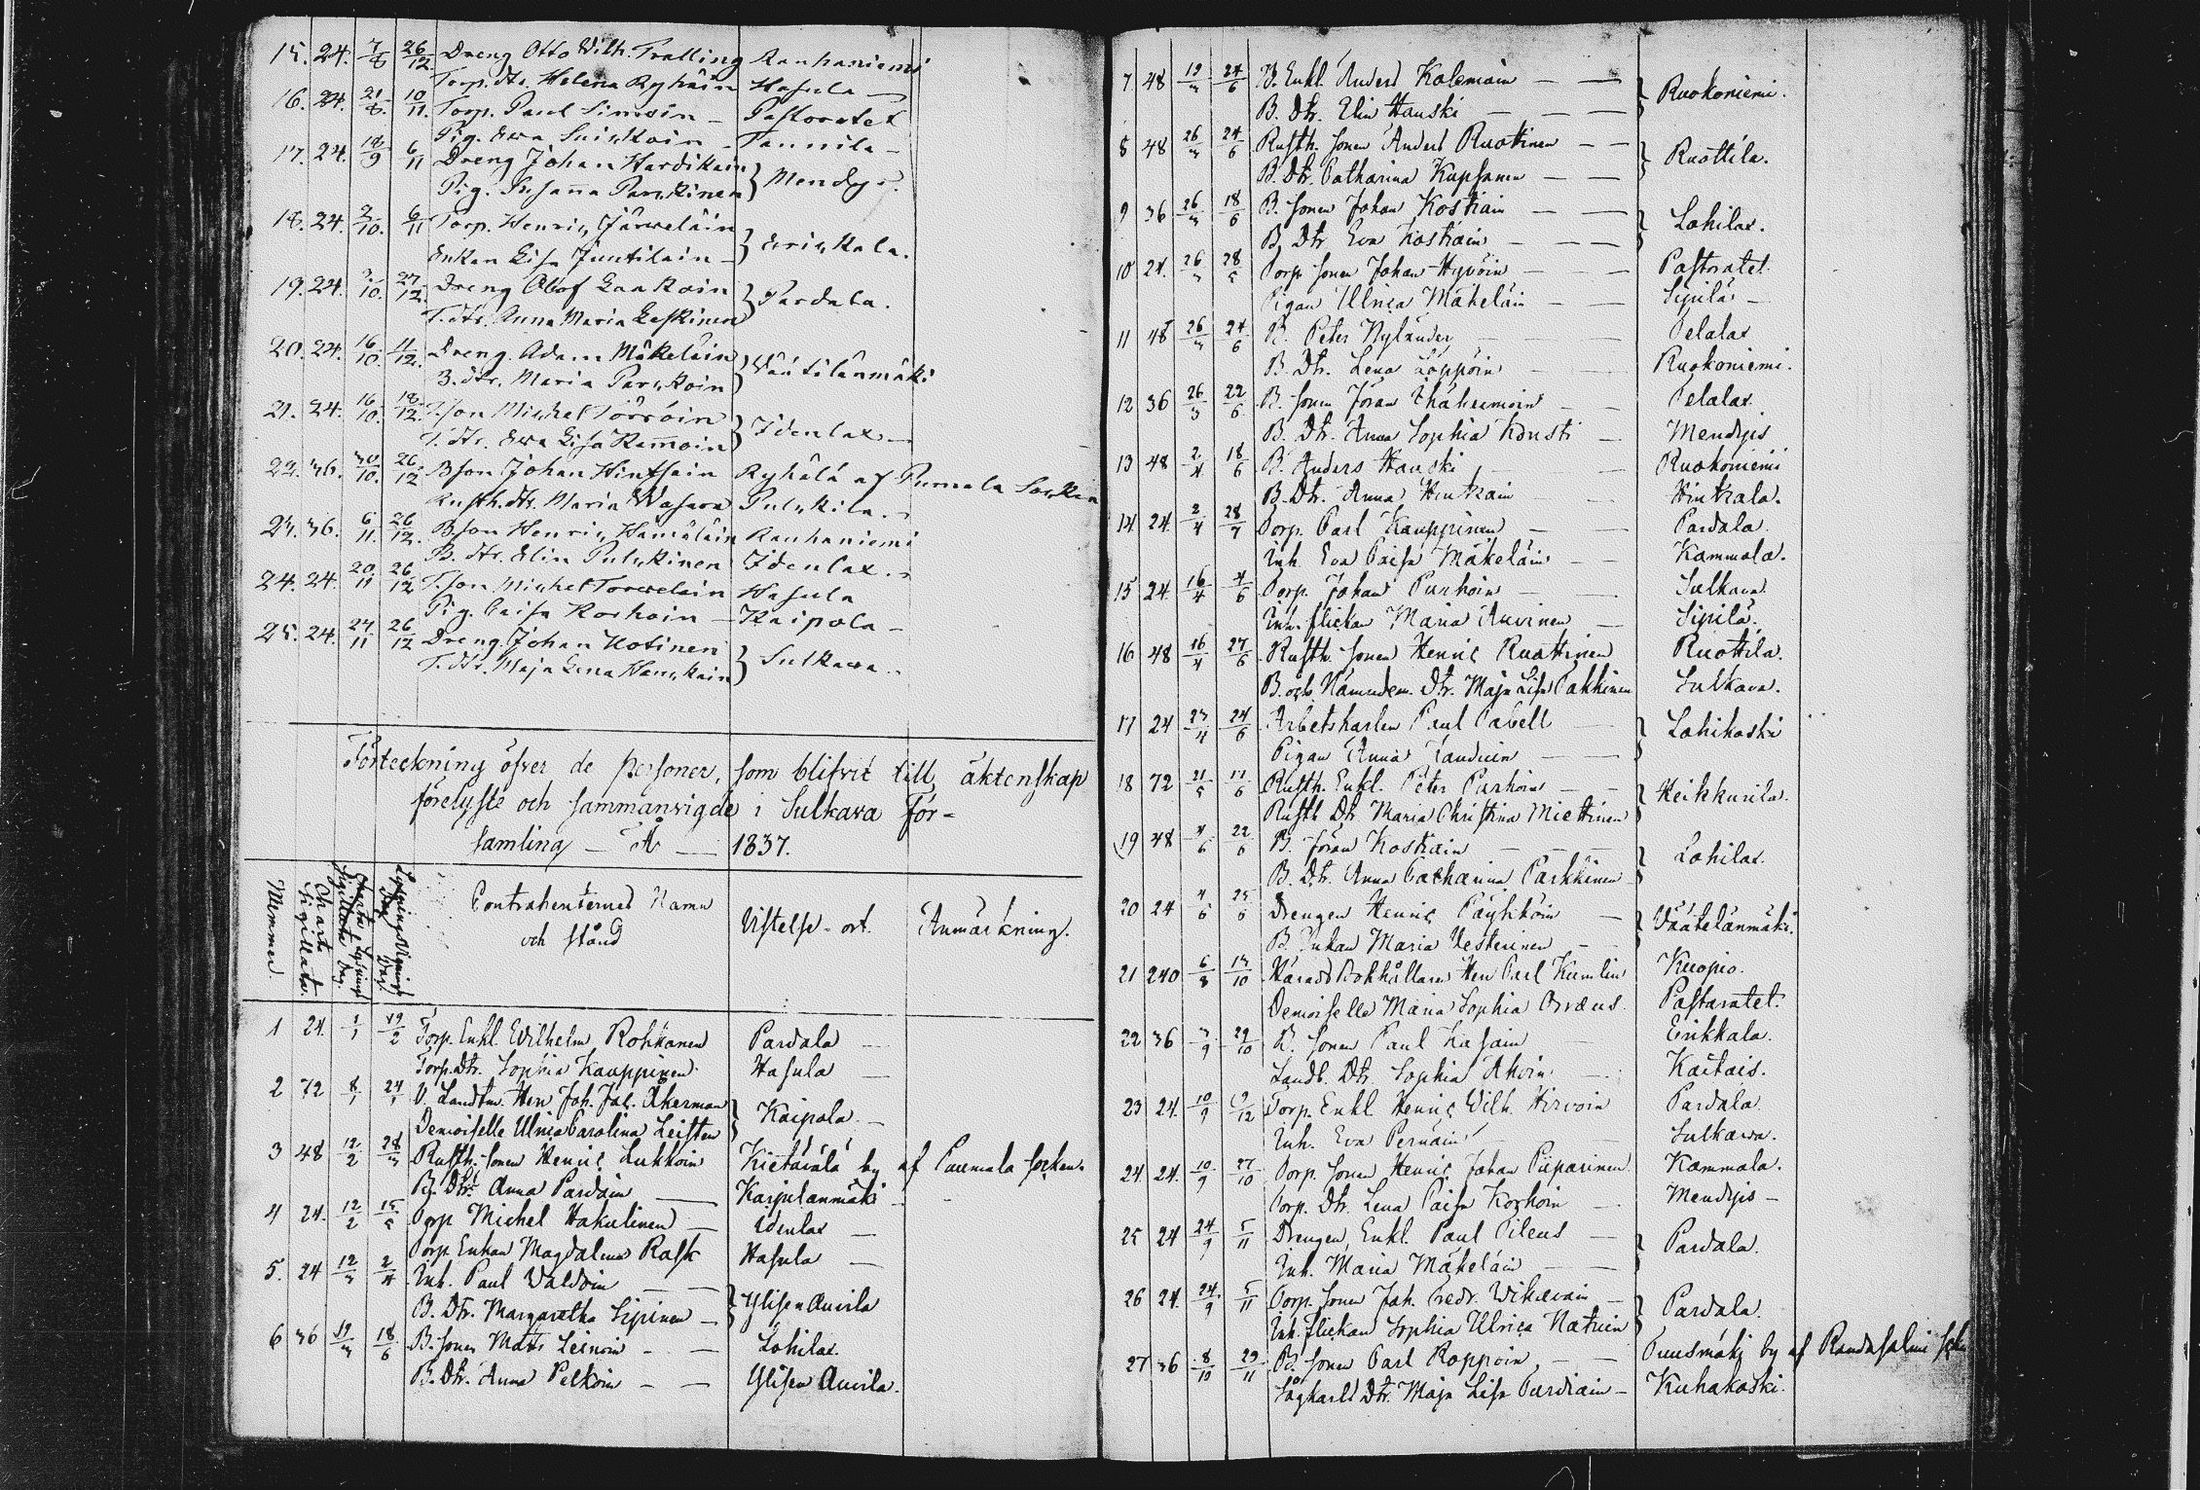 15. 24. 7/8 26/12 Dreng Otto Wilh. Tralling Rauhaniemi
Torp. dtr. Helena Ryhäin Hasula —
16. 24. 21/8 10/11. Torp. Paul Simoin — Pastoratet
Pig. Ewa Tannila —
17. 24. 18/9 6/11 Dreng Johan Hardikain } Mendys.
Pig. Susanna Parckinen
18. 24. 2/10. 6/11 Torp. Henric Järveläin } Erickala.
Enkan Lisa Juntilain —
19. 24. 27/12. Dreng Olof Laakoin } Pardala.
T. dtr. Anna Maria Leskinen
20. 24. 16/10. 11/12. Dreng. Adam Mäkeläin } Väätälänmäki
B. dtr. Maria Parckoin
21. 24. 16/10. 18/12. T. son Michel Törröin } Idenlax —
T. dtr. Ewa Lisa Kammoin
22. 36. 30/10. 26/12 B son Johan Hintsain Ryhälä af Pumala Socken
Rusth. dtr. Maria Wasara Pulckila. —
23. 36. 6/11. 26/12. B son Henric Hämäläin Rauhaniemi
B. dtr. Elin Pulckinen Idenlax. —
24. 24. 20/11 26/12 T. son Michel Torvelain Hasula
Pig. Caisa Korhoin — Kaipola —
25. 24. 27/11 26/12 Dreng. Johan Kotinen } Sulkava —
T. dtr. Maja Lena Hauckain
Förteckning öfver de personer, som blifvit till äktenskap
förelyste och sammanvigde i Sulkava För-
samling — År — 1837.
Nummer. Charta Sigillata. Charta Sigillata Dag. Lysnings Dag. Vignings Dag. Contrahenternes Namn och stånd Vistelse-ort. Anmärkning.
1 24. 1/1 19/2 Torp. Enkl. Wilhelm Rohkanen Pardala —
Torp. Dtr. Sophia Kauppinen Hasula —
2 72 8/1 24/1 V. Landtm. Herr Joh. Jac. Åkerman } Kaipola —
Demoiselle Ulrica Carolina Leisten
3 48 12/2 28/3 Rusth. sonen Henric Lukkoin Kietävälä by af Puumala socken.
B. Dtr. Anna Pardain — Karjulanmäki —
4 24. 12/2 15/5 Torp Michel Hakulinen — Idenlax —
Torp Enkan Magdalena Rask Hasula —
5. 24 12/3 2/4 Inh. Paul Valdoin — } Ylisen Auvila
B. Dtr. Margaretha Sipinen —
6 36 19/3 18/6 B. Sonen Matts Leinoin — Lohilax
B. Dtr. Anna Pelkoin — — Ylisen Auvila.
7 48 19/3 24/6 B. Enkl. Anders Kolemain — — } Ruokoniemi.
B. Dtr. Elin Hauski — —
8 48 26/3 24/6 Rusth. sonen Anders Ruottinen — — } Ruottila.
B. Dtr. Catharina Kupsanen — —
9 36 26/3 18/6 B. sonen Johan Kostiain — — } Lohilax.
B. Dtr Eva Kostiain — —
10 24. 26/3 28/5 Torp sonen Johan Hyvöin — — Pastoratet.
Pigan Ulrica Mäkeläin — — Sipilä —
11 48 26/3 24/6 B. Peter Nyländer — — Telalax
B. Dtr. Lena Löppöin — — Ruokoniemi.
12 36 26/3 22/6 B. sonen Jöran — Telalax.
B. Dtr. Anna Sophia Konsti — Mendys
13 48 2/4 18/6 B. Anders Hauski — Ruokoniemi
B. Dtr. Anna Hinkain — Hinkala.
14 24. 2/4 28/7 Torp. Carl Kauppinen — Pardala.
Inh. Eva Caisa Mäkeläin — Kammala.
15 24. 16/4 4/6 Torp. Johan Purhoin — Sulkava
Inh. flickan Maria Auvinen — Sipilä.
16 48 16/4 27/6 Rusth. sonen Henric Ruottinen Ruottila.
B. och Nämndem. Dtr. Maja Lisa Pakkinen Sulkava.
17 24 23/4 24/6 Arbetskarlen Paul Pabell — } Lohikoski
Pigan Anna —
18 72 21/5 17/6 Rusth. Enkl. Peter Purhoin — } Heikkurila.
Rusth Dtr. Maria Christina Miettinen
19 48 4/6 22/6 B. Jöran Kostiain — — } Lohilax.
B. Dtr. Anna Catharina Parkkinen
20 24 4/6 25/6 Drengen Henric Päykköin — } Väätelänmäki.
B. Enkan Maria Vesterinen —
21 240 6/8 15/10 Härads Bokhållaren Herr Carl Kumlin Kuopio.
Demoiselle Maria Sophia Orræus. Pastoratet.
22 36 3/9 29/10 B. sonen Paul Kasain Erikkala.
Landb. Dtr. Sophia Ahoin — Kaitais.
23 24. 10/9 9/12 Torp. Enkl. Henric Wilh. Hirvoin Pardala.
Inh. Eva Pernain — Sulkava.
24. 24. 10/9 27/10 Torp. sonen Henric Johan Piiparinen Kammala.
Torp. Dtr. Lena Caisa Korhoin — Mendys —
25 24 24/9 5/11 Drengen, Enkl. Paul Pileus — } Pardala.
Inh. Maria Mäkeläin — —
26 24. 24/9 5/11 Torp. sonen Joh. Fredr. Wikavain — } Pardala.
Inh. flickan Sophia Ulrica Natuin
27 36 8/10 29/11 B. sonen Carl Roppoin — — Puusmäki by af Randasalmi sckn
Sågkarls Dtr. Maja Lisa Pardiain — Kuhakoski.